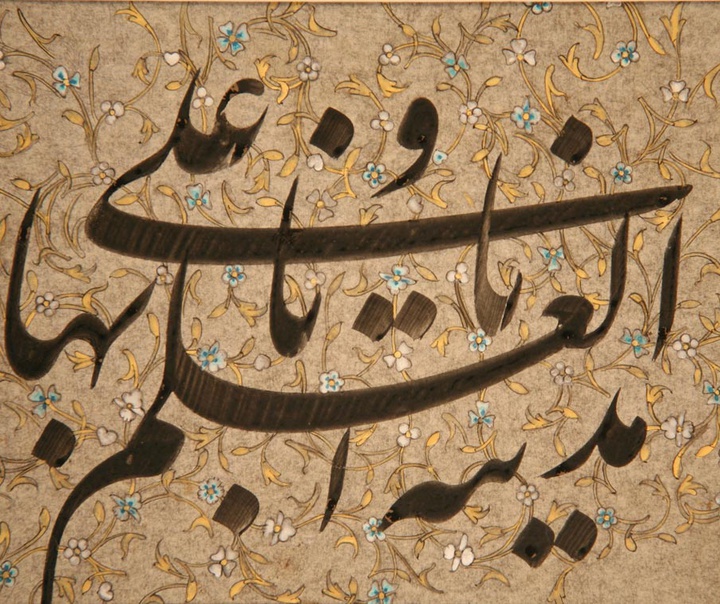 انا مدينة العلم و علي بابها